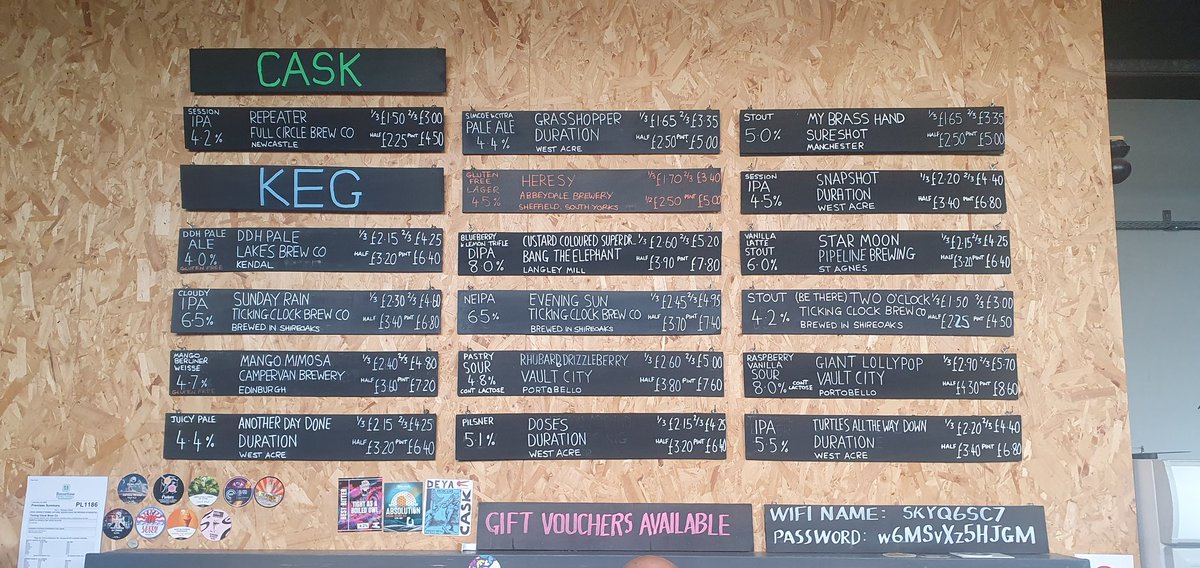 CASK
SESSION IPA 4.2% REPEATER 1/3 £1.50 2/3 £3.00
FULL CIRCLE BREW CO
NEWCASTLE HALF £2.25 PINT £4.50
SIMCOE & CITRA PALE ALE 4.4% GRASSHOPPER 1/3 £1.65 2/3 £3.35
DURATION
WEST ACRE HALF £2.50 PINT £5.00
STOUT 5.0% MY BRASS HAND 1/3 £1.65 2/3 £3.35
SURESHOT
MANCHESTER HALF £2.50 PINT £5.00
KEG
GLUTEN FREE LAGER 4.5% HERESY 1/3 £1.70 2/3 £3.40
ABBEYDALE BREWERY
SHEFFIELD, SOUTH YORKS 1/2 £2.50 PINT £5.00
SESSION IPA 4.5% SNAPSHOT 1/3 £2.20 2/3 £4.40
DURATION
WEST ACRE HALF £3.40 PINT £6.80
DDH PALE ALE 4.0% GLUTEN FREE DDH PALE 1/3 £2.15 2/3 £4.25
LAKES BREW CO
KENDAL HALF £3.20 PINT £6.40
BLUEBERRY & LEMON TRIFLE DIPA 8.0% CUSTARD COLOURED SUPERDR.. 1/3 £2.60 2/3 £5.20
BANG THE ELEPHANT
LANGLEY MILL HALF £3.90 PINT £7.80
VANILLA LATTE STOUT 6.0% STAR MOON 1/3 £2.15 2/3 £4.25
PIPELINE BREWING
ST AGNES HALF £3.20 PINT £6.40
CLOUDY IPA 6.5% SUNDAY RAIN 1/3 £2.30 2/3 £4.60
TICKING CLOCK BREW CO
BREWED IN SHIREOAKS HALF £3.40 PINT £6.80
NEIPA 6.5% EVENING SUN 1/3 £2.45 2/3 £4.95
TICKING CLOCK BREW CO
BREWED IN SHIREOAKS HALF £3.70 PINT £7.40
STOUT 4.2% (BE THERE) TWO O'CLOCK 1/3 £1.50 2/3 £3.00
TICKING CLOCK BREW CO
BREWED IN SHIREOAKS HALF £2.25 PINT £4.50
MANGO BERLINER WEISSE 4.7% GLUTEN FREE MANGO MIMOSA 1/3 £2.40 2/3 £4.80
CAMPERVAN BREWERY
EDINBURGH HALF £3.60 PINT £7.20
PASTRY SOUR 4.8% CONT LACTOSE RHUBARB, DRIZZLEBERRY 1/3 £2.60 2/3 £5.00
VAULT CITY
PORTOBELLO HALF £3.80 PINT £7.60
RASPBERRY VANILLA SOUR 8.0% CONT LACTOSE GIANT LOLLYPOP 1/3 £2.90 2/3 £5.70
VAULT CITY
PORTOBELLO HALF £4.30 PINT £8.60
JUICY PALE 4.4% ANOTHER DAY DONE 1/3 £2.15 2/3 £4.25
DURATION
WEST ACRE HALF £3.20 PINT £6.40
PILSNER 5.1% DOSES 1/3 £2.15 2/3 £4.25
DURATION
WEST ACRE HALF £3.20 PINT £6.40
IPA 5.5% TURTLES ALL THE WAY DOWN 1/3 £2.20 2/3 £4.40
DURATION
WEST ACRE HALF £3.40 PINT £6.80
Premises Summary PL1186
BEST BITTER
TIGHT AS A BOILED OWL
ABSOLUTION
DEYA
CASK
GIFT VOUCHERS AVAILABLE
WIFI NAME: SKYQ6SC7
PASSWORD: w6MSvXz5HJGM